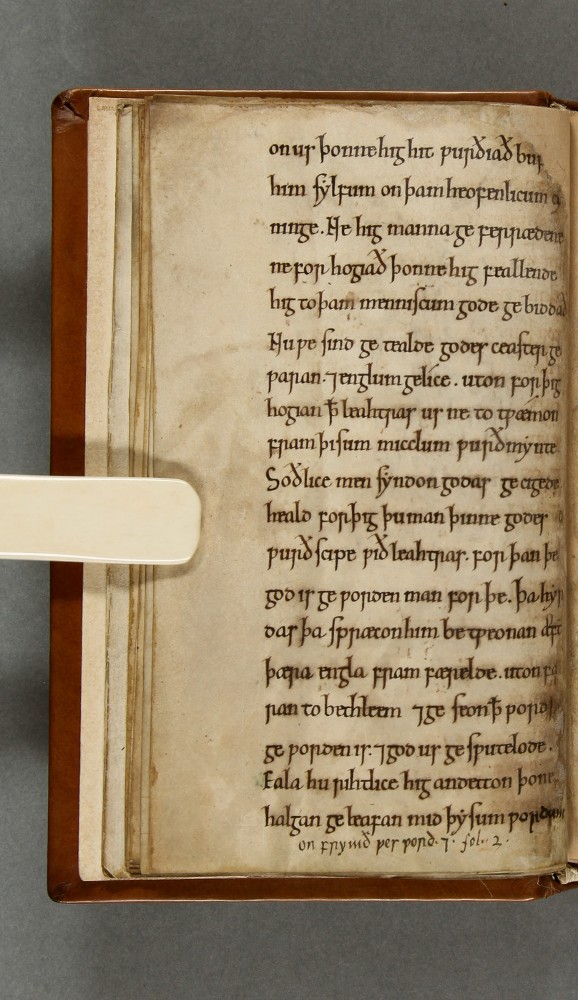 on us þonne hig hit ƿurðiað bu
him sylfum on þam heofenlicum
ninge. Ne hig manna ge ferrædene
ne for hogiað þonne hig feallende
hig to þam menniscum gode ge biddað
Nu ƿe sind ge tealde godes ceaster ge
ƿaran. ⁊ englum gelice. uton for þig
hogian ꝥ leahtras us ne to tƿæmon
fram þisum micclum ƿurðmynte
Soðlice men syndon godas ge cigede
heald forþig þu man þinne godes
ƿurðscipe ƿið leahtras. for þan þe
god is ge ƿorden man for þe. þa hyr
das þa spræcon him be tƿeonan æft
þæra engla fram færelde. uton fa
ran to bethleem ⁊ ge seon ꝥ ƿord þe
ge ƿorden is. ⁊ god us ge sƿutelode.
Eala hu rihtlice hig andetton þone
halgan ge leafan mid þysum ƿordum
on frymð ƿes ƿord. ⁊ fol. 2.